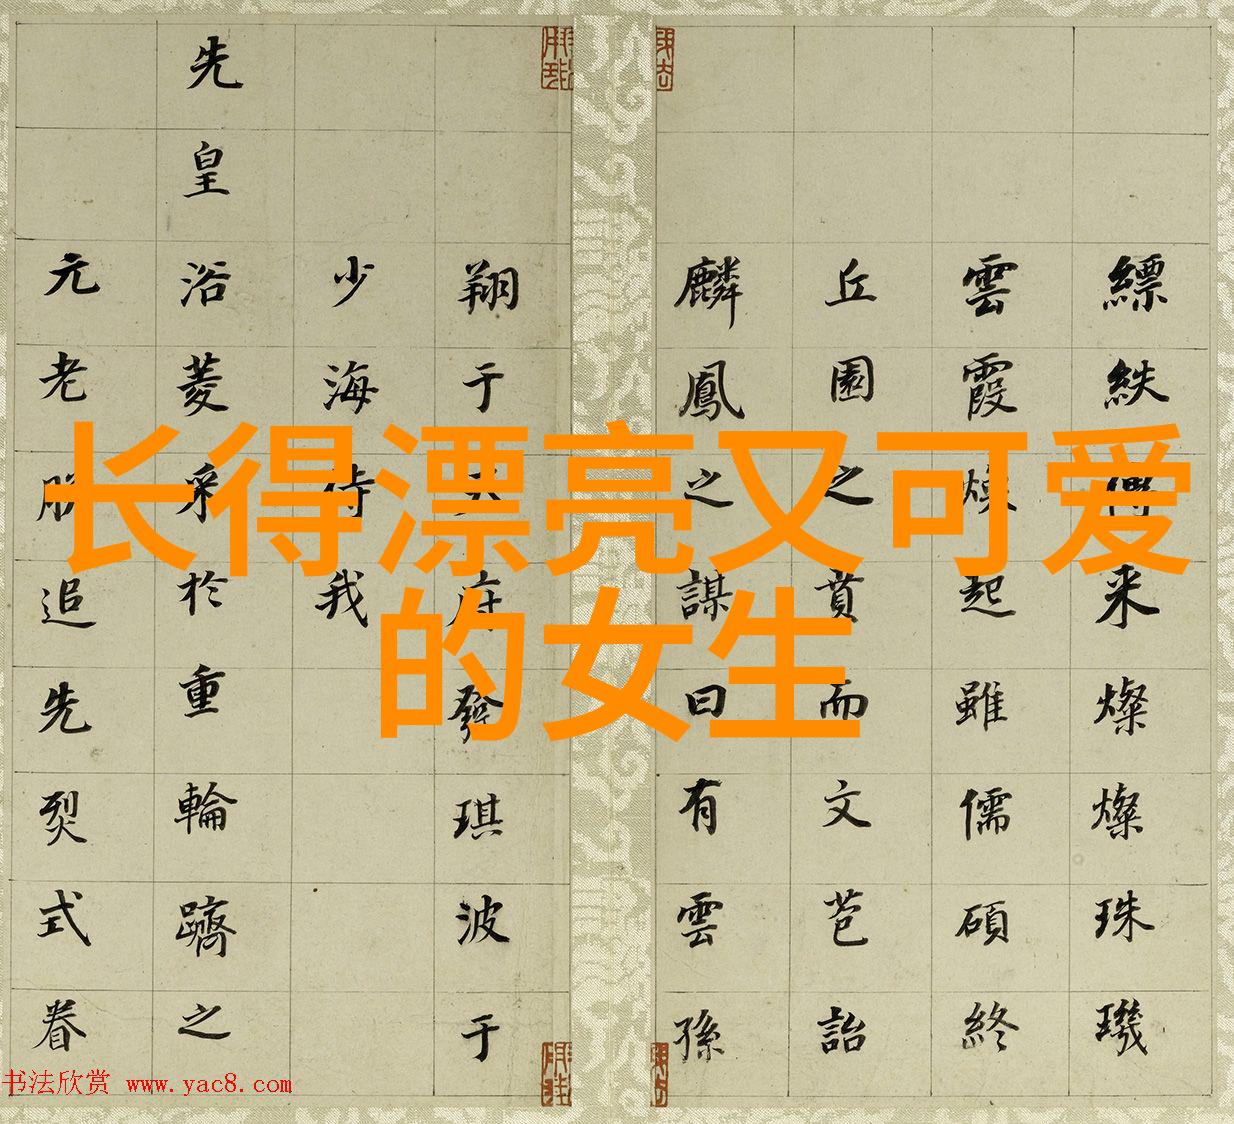 縹
帙
傳
来
燦
燦
珠
璣
雲
霞
煥
起
雖
儒
碩
終
丘
園
之
賁
而
文
苞
詒
麟
鳳
之
謀
曰
有
雲
孫
翔
于
天
府
發
琪
波
于
少
海
侍
我
先
皇
浴
菱
采
於
重
輪
躋
之
元
老
追
先
烈
式
眷
长得漂亮又可爱
的女生
书法欣赏 www.yac8.com